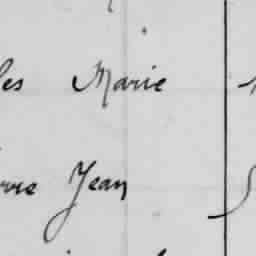 les Marie
rre Jean